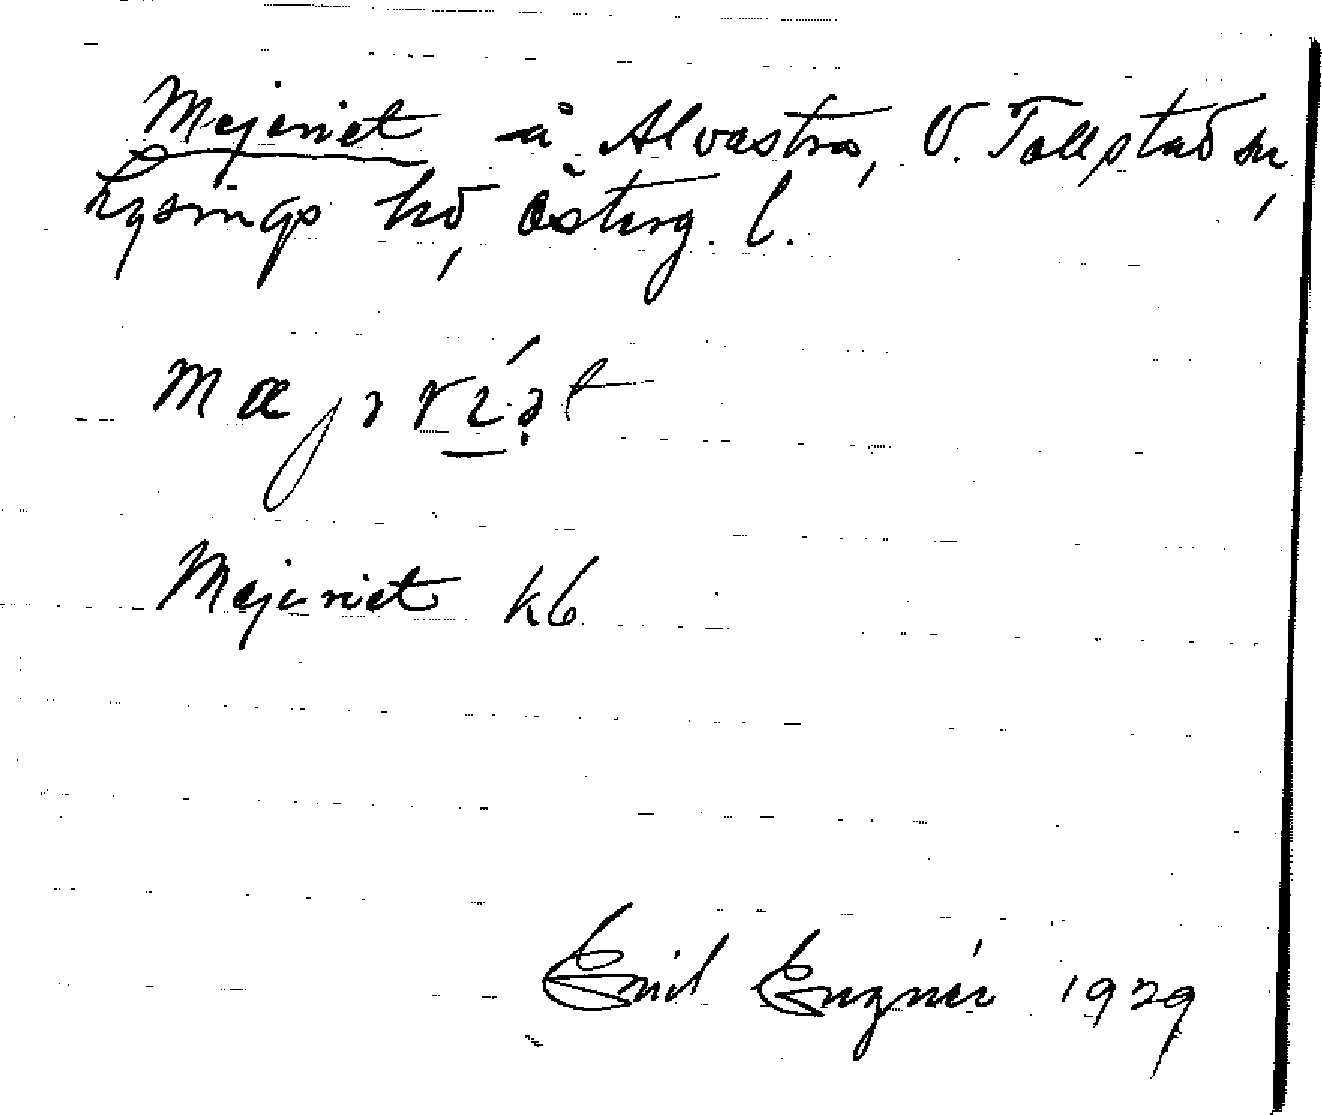 Mejeriet å Alvastra, V. Tollstad sn,
Lysings hd, Österg. l.
mæjərı́ə̣t
Mejeriet kb
Emil Engnér 1929